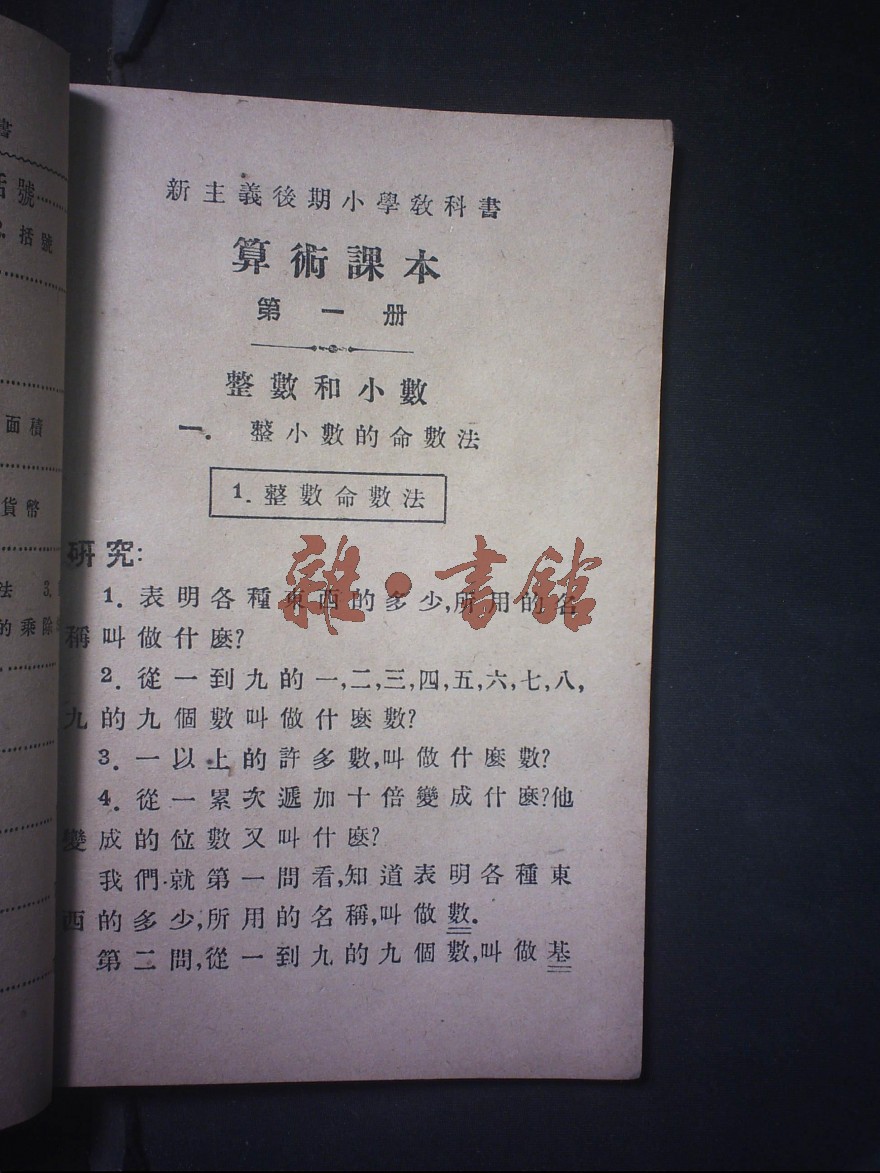 書
括號
括號
面積
貨幣
法 3.
的乘除
新主義後期小學教科書
算術課本
第一册
整數和小數
一. 整小數的命數法
1. 整數命數法
研究:
1. 表明各種東西的多少,所用的名
稱叫做什麼?
2. 從一到九的一,二,三,四,五,六,七,八,
九的九個數叫做什麼數?
3. 一以上的許多數,叫做什麼數?
4. 從一累次遞加十倍變成什麼?他
變成的位數又叫什麼?
我們就第一問看,知道表明各種東
西的多少,所用的名稱,叫做數.
第二問,從一到九的九個數,叫做基
雜·書館